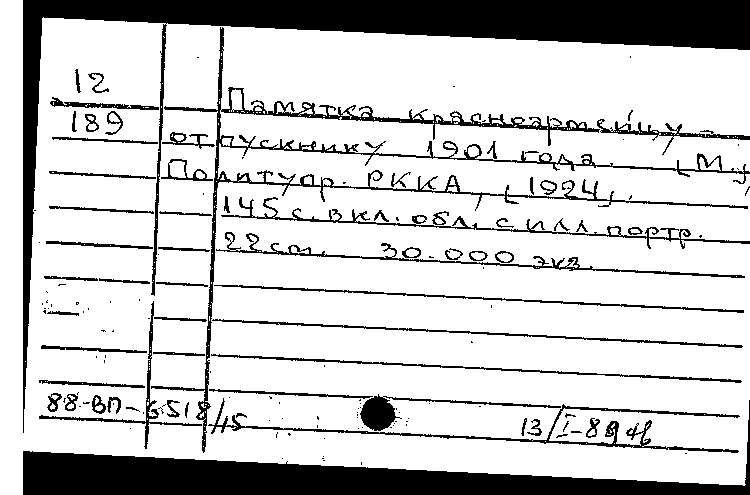 12
189
Памятка красноармейцу-
отпускнику 1901 года. [М.]
Политупр. РККА, [1924].
145 с. вкл. обл. с илл. портр.
22 cm. 30.000 экз.
88-ВП-6518/15
13/I-89